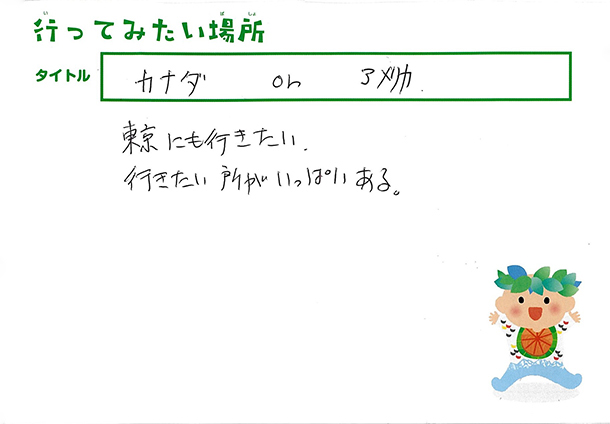 行ってみたい場所
タイトル カナダ or アメリカ.
東京にも行きたい.
行きたい所がいっぱいある。